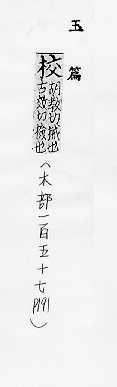 玉篇
校胡教切械也
古效切檢也
(木部一百五十七 P191)